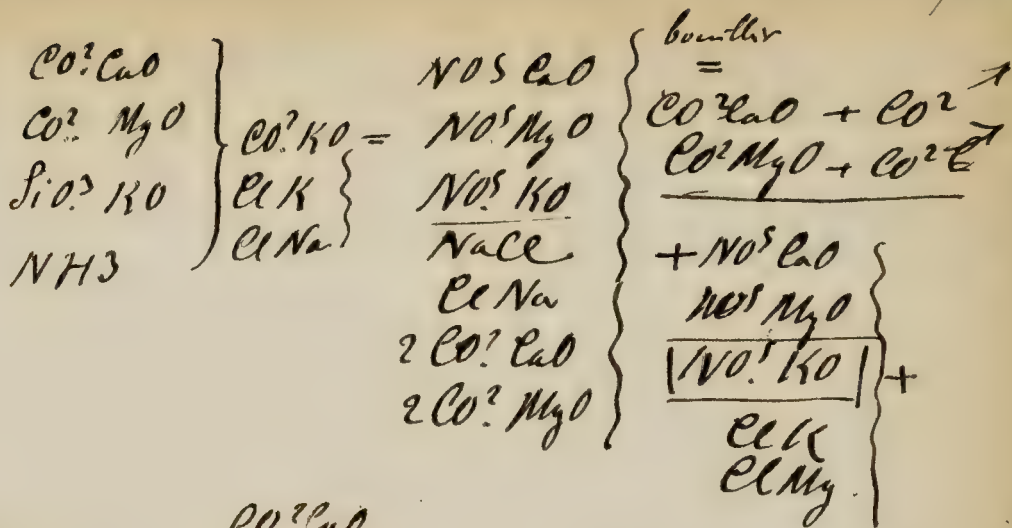 CO². CaO
CO². MgO
SiO³. KO
NH3
CO². KO =
ClK
ClNa
NO5 CaO
NO⁵ MgO
NO⁵. KO
NaCl
ClNa
2 CO². CaO
2 CO². MgO
bouillir
=
CO² CaO + CO²
CO² MgO + CO²
+ NO⁵ CaO
NO⁵ MgO
NO⁵. KO +
ClK
ClMg.
CO² CaO